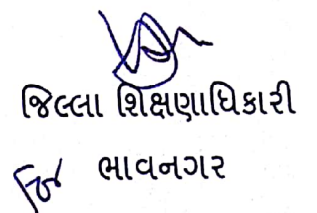 જિલ્લા શિક્ષણાધિકારી
for ભાવનગર